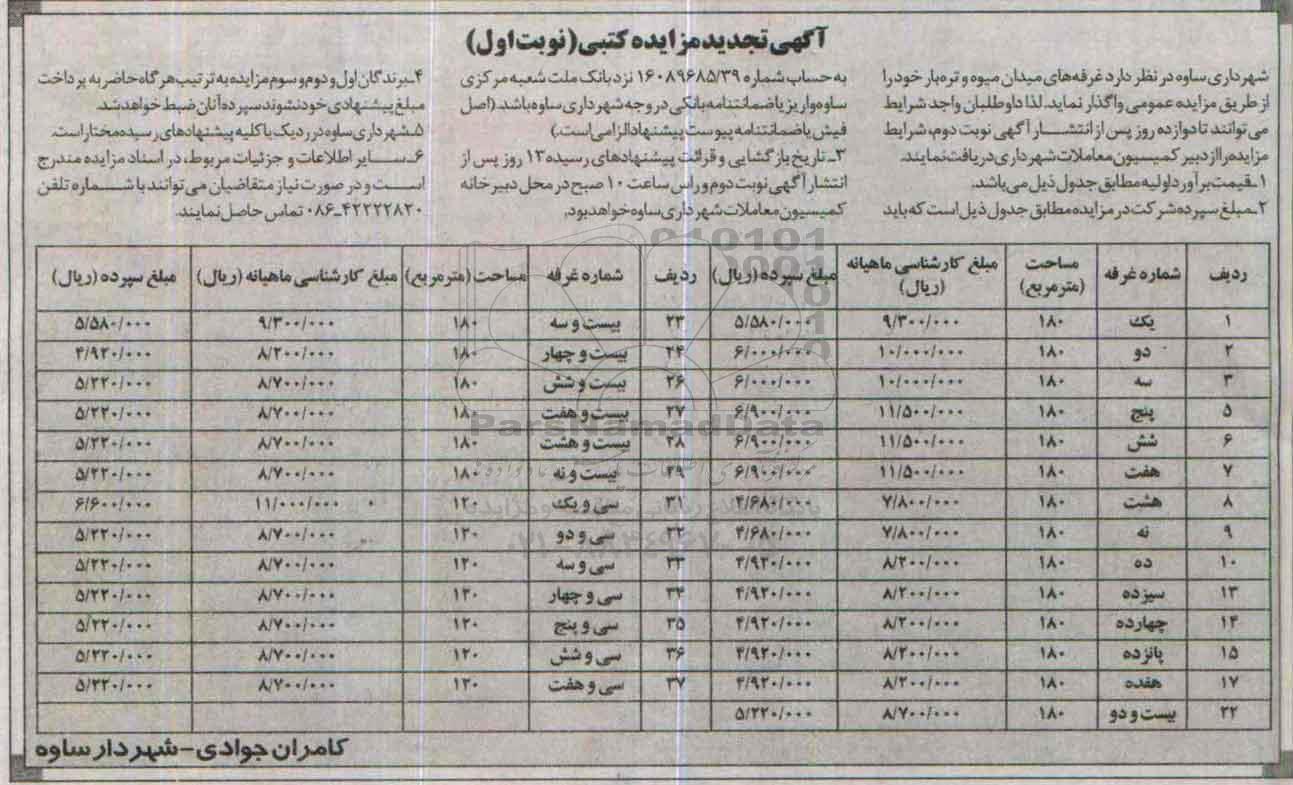 آگهی تجدید مزایده کتبی (نوبت اول)
شهرداری ساوه در نظر دارد غرفه‌های میدان میوه و تره‌بار خود را
از طریق مزایده عمومی واگذار نماید. لذا داوطلبان واجد شرایط
می‌توانند تا دوازده روز پس از انتشار آگهی نوبت دوم، شرایط
مزایده را از دبیر کمیسیون معاملات شهرداری دریافت نمایند.
۱ـ قیمت برآورد اولیه مطابق جدول ذیل می‌باشد.
۲ـ مبلغ سپرده شرکت در مزایده مطابق جدول ذیل است که باید
به حساب شماره ۱۶۰۸۹۶۸۵/۳۹ نزد بانک ملت شعبه مرکزی
ساوه واریز یا ضمانتنامه بانکی در وجه شهرداری ساوه باشد. (اصل
فیش یا ضمانتنامه پیوست پیشنهاد الزامی است.)
۳ـ تاریخ بازگشایی و قرائت پیشنهادهای رسیده ۱۳ روز پس از
انتشار آگهی نوبت دوم و راس ساعت ۱۰ صبح در محل دبیرخانه
کمیسیون معاملات شهرداری ساوه خواهد بود.
۴ـ برندگان اول و دوم و سوم مزایده به ترتیب هرگاه حاضر به پرداخت
مبلغ پیشنهادی خود نشوند سپرده آنان ضبط خواهد شد.
۵ـ شهرداری ساوه در رد یک یا کلیه پیشنهادهای رسیده مختار است.
۶ـ سایر اطلاعات و جزئیات مربوط، در اسناد مزایده مندرج
است و در صورت نیاز متقاضیان می‌توانند با شماره تلفن
۰۸۶ـ۴۲۲۲۲۸۲۰ تماس حاصل نمایند.
ردیف شماره غرفه مساحت (مترمربع) مبلغ کارشناسی ماهیانه (ریال) مبلغ سپرده (ریال) ردیف شماره غرفه مساحت (مترمربع) مبلغ کارشناسی ماهیانه (ریال) مبلغ سپرده (ریال)
۱ یک ۱۸۰ ۹/۳۰۰/۰۰۰ ۵/۵۸۰/۰۰۰ ۲۳ بیست و سه ۱۸۰ ۹/۳۰۰/۰۰۰ ۵/۵۸۰/۰۰۰
۲ دو ۱۸۰ ۱۰/۰۰۰/۰۰۰ ۶/۰۰۰/۰۰۰ ۲۴ بیست و چهار ۱۸۰ ۸/۲۰۰/۰۰۰ ۴/۹۲۰/۰۰۰
۳ سه ۱۸۰ ۱۰/۰۰۰/۰۰۰ ۶/۰۰۰/۰۰۰ ۲۶ بیست و شش ۱۸۰ ۸/۷۰۰/۰۰۰ ۵/۲۲۰/۰۰۰
۵ پنج ۱۸۰ ۱۱/۵۰۰/۰۰۰ ۶/۹۰۰/۰۰۰ ۲۷ بیست و هفت ۱۸۰ ۸/۷۰۰/۰۰۰ ۵/۲۲۰/۰۰۰
۶ شش ۱۸۰ ۱۱/۵۰۰/۰۰۰ ۶/۹۰۰/۰۰۰ ۲۸ بیست و هشت ۱۸۰ ۸/۷۰۰/۰۰۰ ۵/۲۲۰/۰۰۰
۷ هفت ۱۸۰ ۱۱/۵۰۰/۰۰۰ ۶/۹۰۰/۰۰۰ ۲۹ بیست و نه ۱۸۰ ۸/۷۰۰/۰۰۰ ۵/۲۲۰/۰۰۰
۸ هشت ۱۸۰ ۷/۸۰۰/۰۰۰ ۴/۶۸۰/۰۰۰ ۳۱ سی و یک ۱۲۰ ۱۱/۰۰۰/۰۰۰ ۶/۶۰۰/۰۰۰
۹ نه ۱۸۰ ۷/۸۰۰/۰۰۰ ۴/۶۸۰/۰۰۰ ۳۲ سی و دو ۱۲۰ ۸/۷۰۰/۰۰۰ ۵/۲۲۰/۰۰۰
۱۰ ده ۱۸۰ ۸/۲۰۰/۰۰۰ ۴/۹۲۰/۰۰۰ ۳۳ سی و سه ۱۲۰ ۸/۷۰۰/۰۰۰ ۵/۲۲۰/۰۰۰
۱۳ سیزده ۱۸۰ ۸/۲۰۰/۰۰۰ ۴/۹۲۰/۰۰۰ ۳۴ سی و چهار ۱۲۰ ۸/۷۰۰/۰۰۰ ۵/۲۲۰/۰۰۰
۱۴ چهارده ۱۸۰ ۸/۲۰۰/۰۰۰ ۴/۹۲۰/۰۰۰ ۳۵ سی و پنج ۱۲۰ ۸/۷۰۰/۰۰۰ ۵/۲۲۰/۰۰۰
۱۵ پانزده ۱۸۰ ۸/۲۰۰/۰۰۰ ۴/۹۲۰/۰۰۰ ۳۶ سی و شش ۱۲۰ ۸/۷۰۰/۰۰۰ ۵/۲۲۰/۰۰۰
۱۷ هفده ۱۸۰ ۸/۲۰۰/۰۰۰ ۴/۹۲۰/۰۰۰ ۳۷ سی و هفت ۱۲۰ ۸/۷۰۰/۰۰۰ ۵/۲۲۰/۰۰۰
۲۲ بیست و دو ۱۸۰ ۸/۷۰۰/۰۰۰ ۵/۲۲۰/۰۰۰
کامران جوادی - شهردار ساوه
ParsNamadData